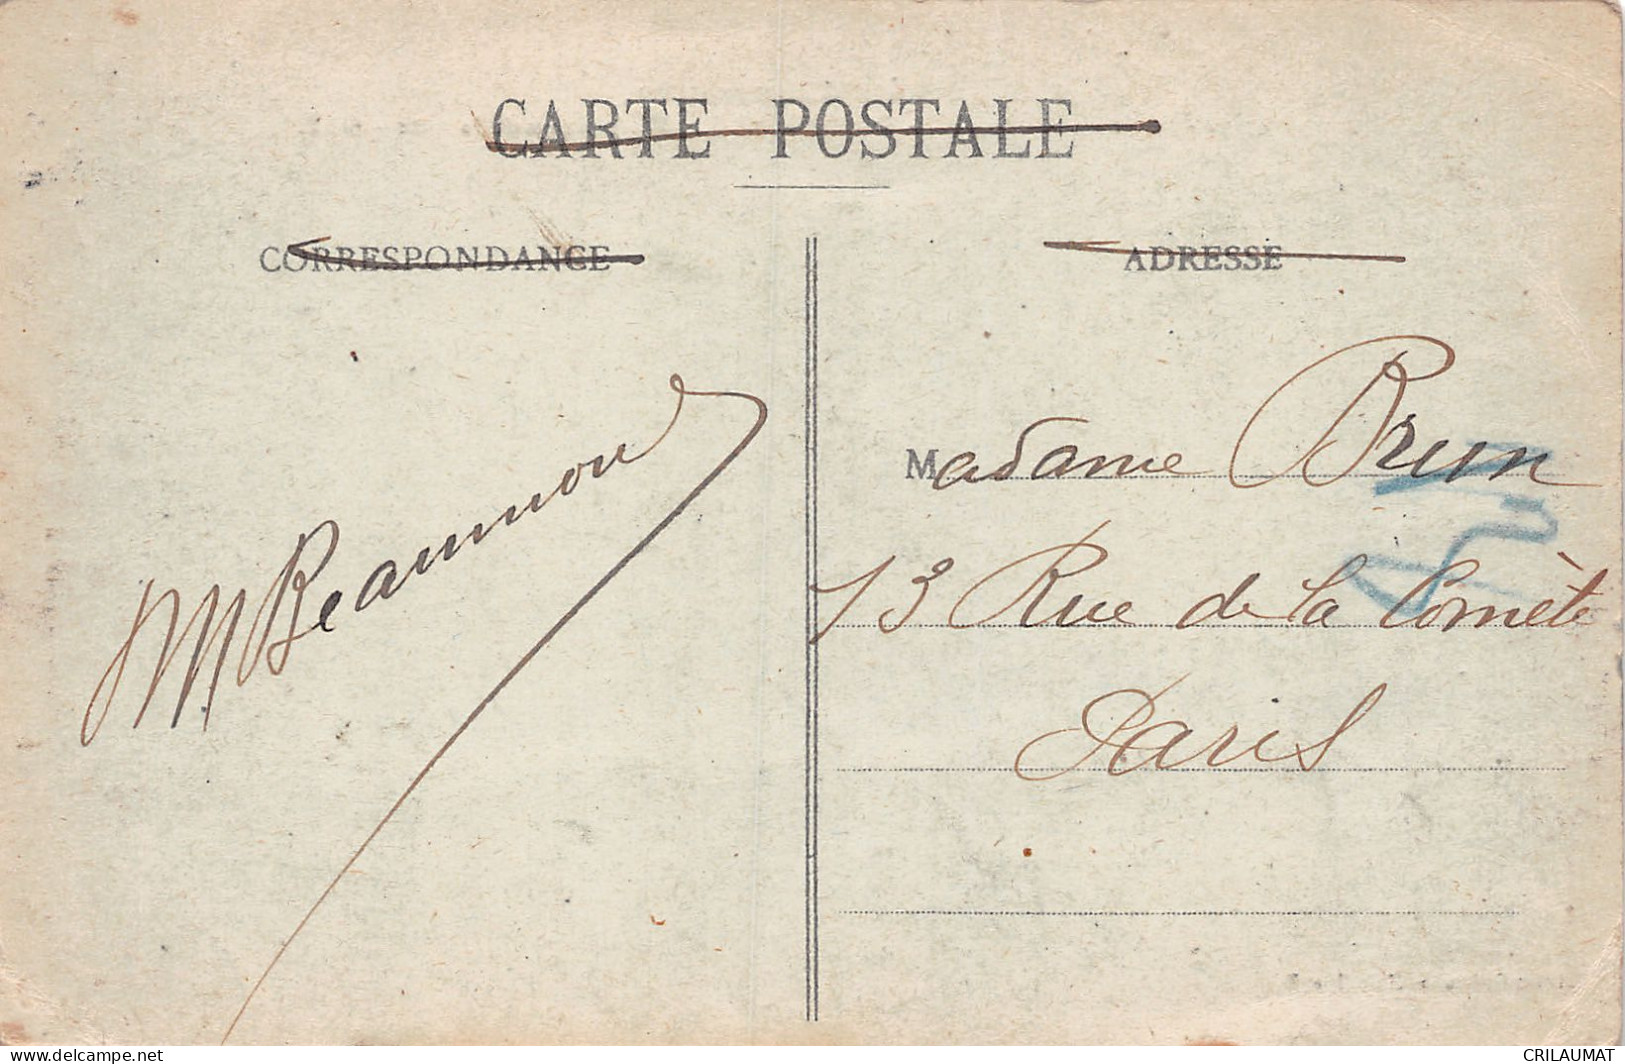 CARTE POSTALE
CORRESPONDANCE
ADRESSE
Madame Brun
13 Rue de la Comète
Paris
Beaumond
www.delcampe.net
CRILAUMAT